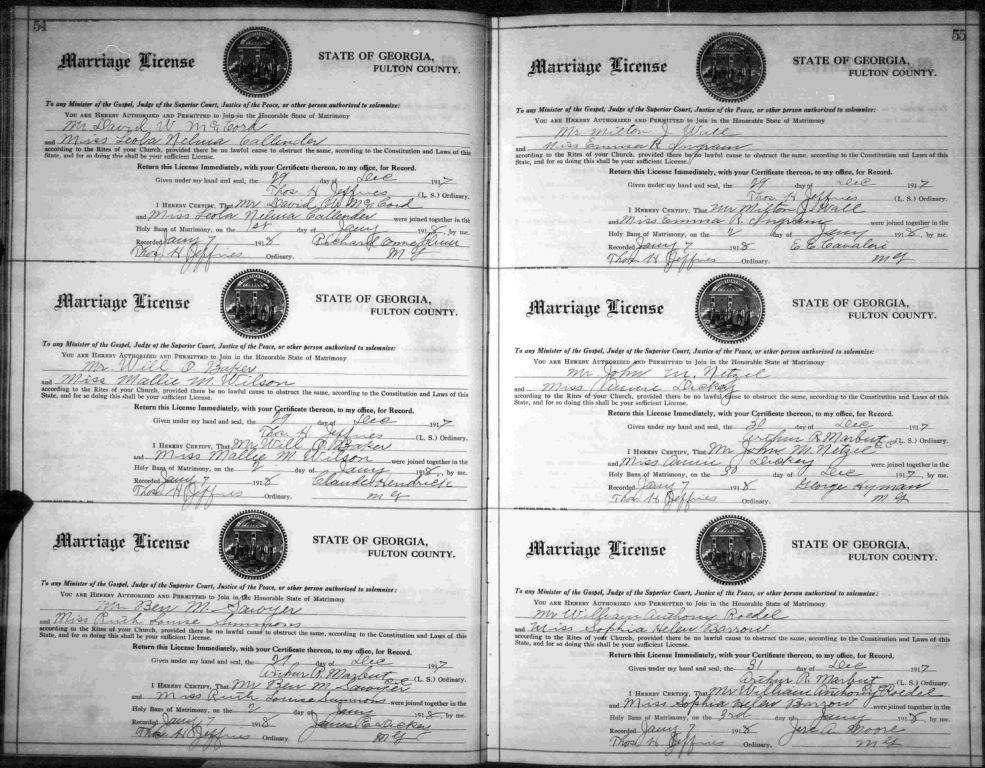 54
Marriage License
STATE OF GEORGIA,
FULTON COUNTY.
To any Minister of the Gospel, Judge of the Superior Court, Justice of the Peace, or other person authorized to solemnize:
YOU ARE HEREBY AUTHORIZED AND PERMITTED to Join in the Honorable State of Matrimony
Mr David W McCord
and Miss Leola Nelma Callender
according to the Rites of your Church, provided there be no lawful cause to obstruct the same, according to the Constitution and Laws of this
State, and for so doing this shall be your sufficient License.
Return this License Immediately, with your Certificate thereon, to my office, for Record.
Given under my hand and seal, the 29 day of Dec 1917
Thos H Jeffries (L. S.) Ordinary.
I HEREBY CERTIFY, That Mr David W McCord
and Miss Leola Nelma Callender were joined together in the
Holy Bans of Matrimony, on the 1st day of Jany 1918, by me.
Recorded Jany 7 1918 Richard
Thos H Jeffries Ordinary. M G
Marriage License
STATE OF GEORGIA,
FULTON COUNTY.
To any Minister of the Gospel, Judge of the Superior Court, Justice of the Peace, or other person authorized to solemnize:
YOU ARE HEREBY AUTHORIZED AND PERMITTED to Join in the Honorable State of Matrimony
Mr Will P Baker
and Miss Mallie M Wilson
according to the Rites of your Church, provided there be no lawful cause to obstruct the same, according to the Constitution and Laws of this
State, and for so doing this shall be your sufficient License.
Return this License Immediately, with your Certificate thereon, to my office, for Record.
Given under my hand and seal, the 29 day of Dec 1917
Thos H Jeffries (L. S.) Ordinary.
I HEREBY CERTIFY, That Mr Will P Baker
and Miss Mallie M Wilson were joined together in the
Holy Bans of Matrimony, on the 2 day of Jany 1918, by me.
Recorded Jany 7 1918 Claude Hendrick
Thos H Jeffries Ordinary. M G
Marriage License
STATE OF GEORGIA,
FULTON COUNTY.
To any Minister of the Gospel, Judge of the Superior Court, Justice of the Peace, or other person authorized to solemnize:
YOU ARE HEREBY AUTHORIZED AND PERMITTED to Join in the Honorable State of Matrimony
Mr Ben M Sawyer
and Miss Ruth Louise Simmons
according to the Rites of your Church, provided there be no lawful cause to obstruct the same, according to the Constitution and Laws of this
State, and for so doing this shall be your sufficient License.
Return this License Immediately, with your Certificate thereon, to my office, for Record.
Given under my hand and seal, the 29 day of Dec 1917
Arthur R Marbut C.C. (L. S.) Ordinary.
I HEREBY CERTIFY, That Mr Ben M Sawyer
and Miss Ruth Louise Simmons were joined together in the
Holy Bans of Matrimony, on the 2 day of Jany 1918, by me.
Recorded Jany 7 1918 James E Dickey
Thos H Jeffries Ordinary. M G
55
Marriage License
STATE OF GEORGIA,
FULTON COUNTY.
To any Minister of the Gospel, Judge of the Superior Court, Justice of the Peace, or other person authorized to solemnize:
YOU ARE HEREBY AUTHORIZED AND PERMITTED to Join in the Honorable State of Matrimony
Mr Milton J Wall
and Miss Emma R Ingram
according to the Rites of your Church, provided there be no lawful cause to obstruct the same, according to the Constitution and Laws of this
State, and for so doing this shall be your sufficient License.
Return this License Immediately, with your Certificate thereon, to my office, for Record.
Given under my hand and seal, the 29 day of Dec 1917
Thos H Jeffries (L. S.) Ordinary.
I HEREBY CERTIFY, That Mr Milton J Wall
and Miss Emma R Ingram were joined together in the
Holy Bans of Matrimony, on the 2 day of Jany 1918, by me.
Recorded Jany 7 1918 E. E. Cavaleri
Thos H Jeffries Ordinary. M G
Marriage License
STATE OF GEORGIA,
FULTON COUNTY.
To any Minister of the Gospel, Judge of the Superior Court, Justice of the Peace, or other person authorized to solemnize:
YOU ARE HEREBY AUTHORIZED AND PERMITTED to Join in the Honorable State of Matrimony
Mr John M. Netzel
and Miss Annie Dickey
according to the Rites of your Church, provided there be no lawful cause to obstruct the same, according to the Constitution and Laws of this
State, and for so doing this shall be your sufficient License.
Return this License Immediately, with your Certificate thereon, to my office, for Record.
Given under my hand and seal, the 30 day of Dec 1917
Arthur R Marbut C.C. (L. S.) Ordinary.
I HEREBY CERTIFY, That Mr John M. Netzel
and Miss Annie Dickey were joined together in the
Holy Bans of Matrimony, on the 30 day of Dec 1917, by me.
Recorded Jany 7 1918 George Hyman
Thos H Jeffries Ordinary. M G
Marriage License
STATE OF GEORGIA,
FULTON COUNTY.
To any Minister of the Gospel, Judge of the Superior Court, Justice of the Peace, or other person authorized to solemnize:
YOU ARE HEREBY AUTHORIZED AND PERMITTED to Join in the Honorable State of Matrimony
Mr William Anthony Roedel
and Miss Sophia Helen Barrow
according to the Rites of your Church, provided there be no lawful cause to obstruct the same, according to the Constitution and Laws of this
State, and for so doing this shall be your sufficient License.
Return this License Immediately, with your Certificate thereon, to my office, for Record.
Given under my hand and seal, the 31 day of Dec 1917
Arthur R Marbut C.C. (L. S.) Ordinary.
I HEREBY CERTIFY, That Mr William Anthony Roedel
and Miss Sophia Helen Barrow were joined together in the
Holy Bans of Matrimony, on the 3rd day of Jany 1918, by me.
Recorded Jany 7 1918 Jere A Moore
Thos H Jeffries Ordinary. M G